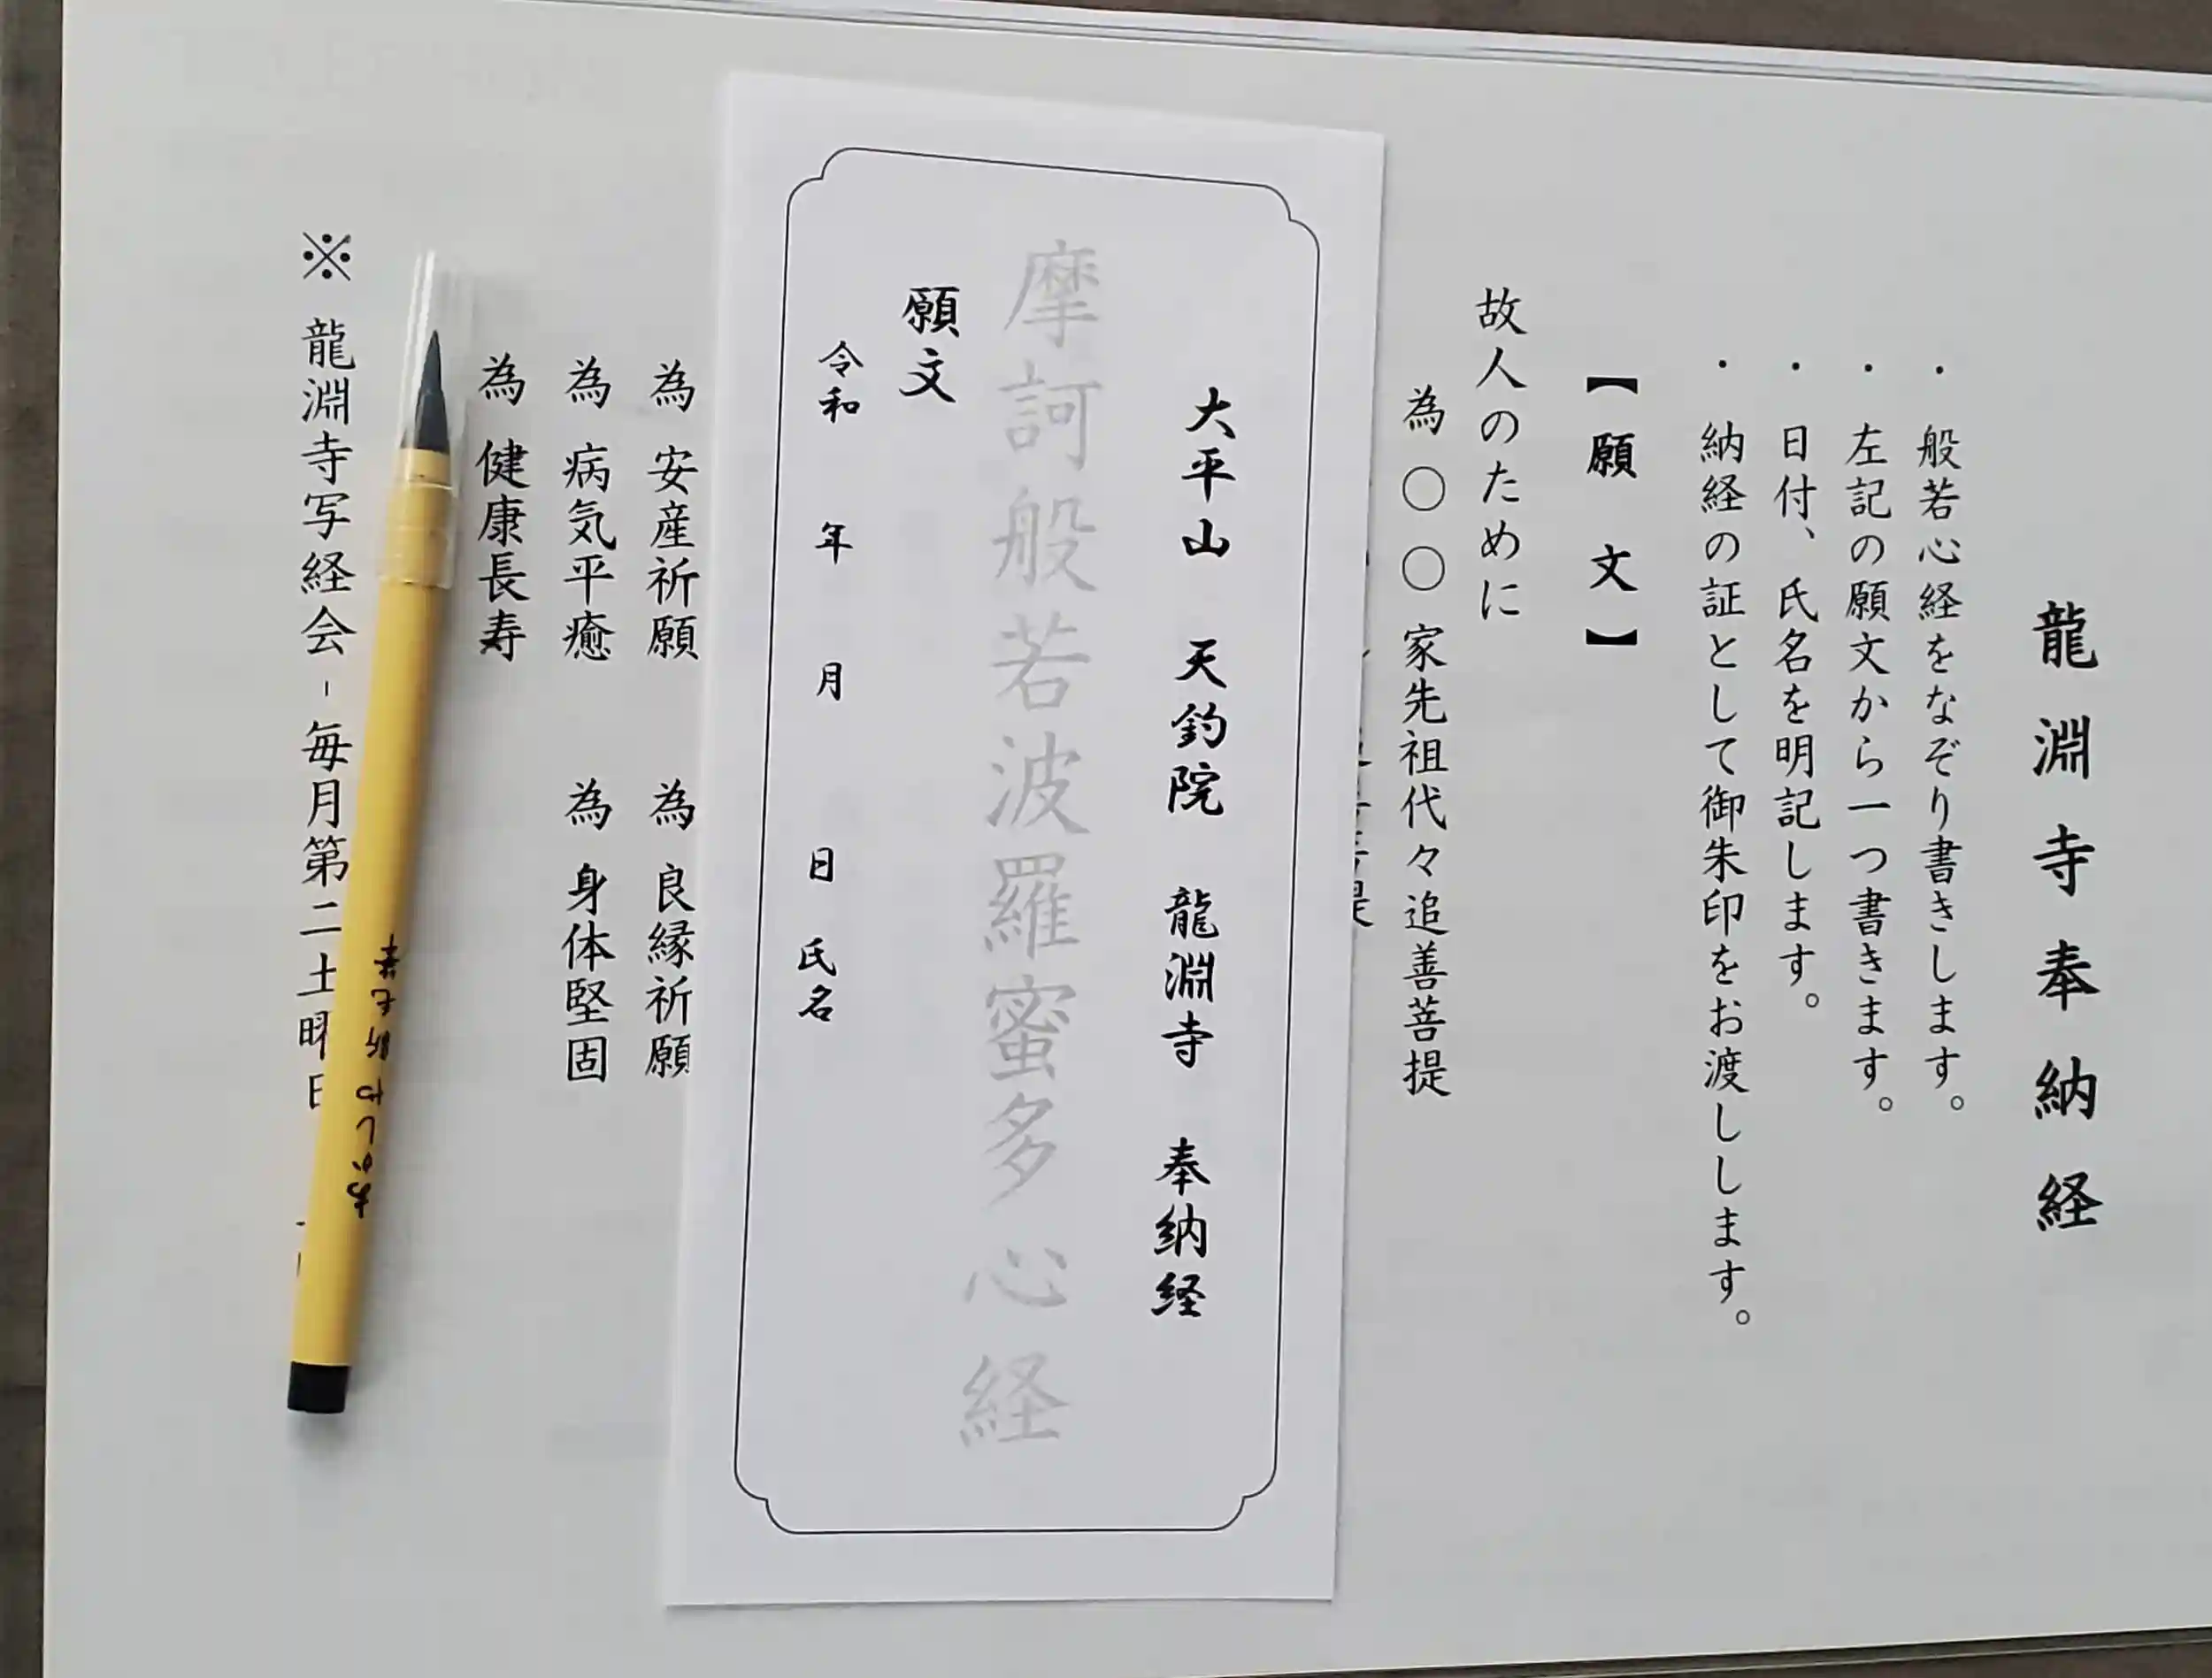 龍淵寺奉納経
・般若心経をなぞり書きします。
・左記の願文から一つ書きます。
・日付、氏名を明記します。
・納経の証として御朱印をお渡しします。
【願文】
故人のために
為〇〇家先祖代々追善菩提
大平山 天釣院 龍淵寺 奉納経
摩訶般若波羅蜜多心経
願文
令和 年 月 日 氏名
為 安産祈願 為 良縁祈願
為 病気平癒 為 身体堅固
為 健康長寿
※ 龍淵寺写経会-毎月第二土曜日
あかしや 新毛筆